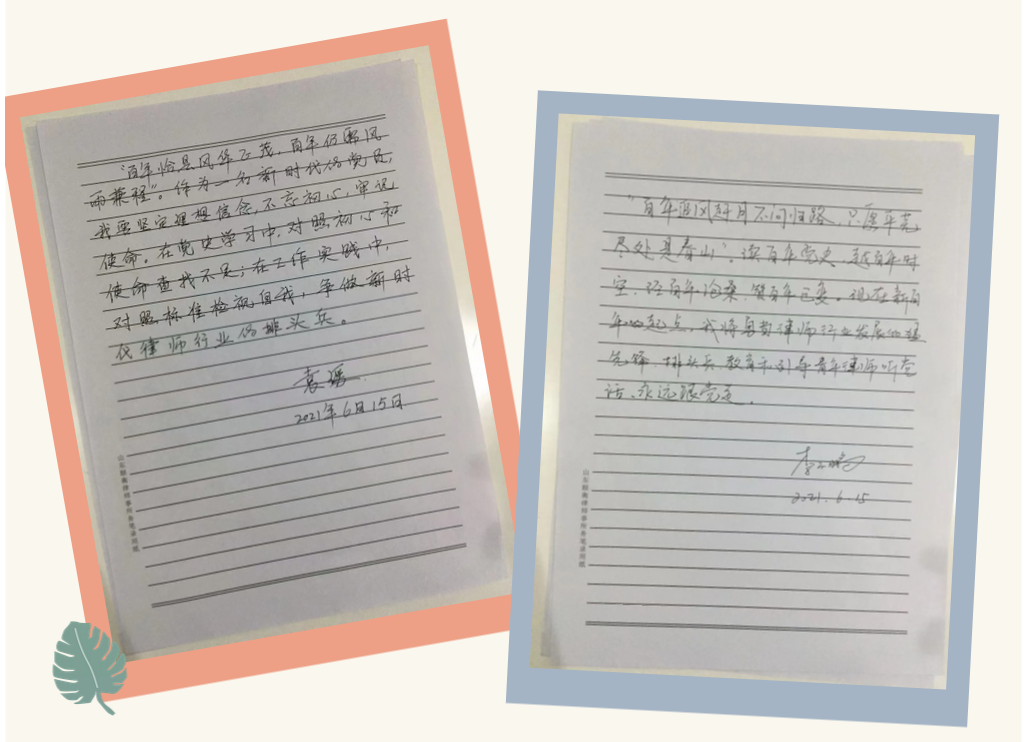 “百年恰是风华正茂，百年仍需风
雨兼程”。作为一名新时代的党员，
我要坚定理想信念，不忘初心，牢记
使命。在党史学习中，对照初心和
使命查找不足；在工作实践中，
对照标准检视自我，争做新时
代律师行业的排头兵。
袁
2021年6月15日
山东颐衡律师事务所笔录用纸
“百年追风赶月不问归路，只愿平芜
尽处是春山”。读百年党史，越百年时
空，经百年沧桑，赞百年巨变。现在新百
年的起点，我将勇做律师行业发展的
先锋、排头兵，教育和引导青年律师听党
话、永远跟党走。
李
2021.6.15
山东颐衡律师事务所笔录用纸